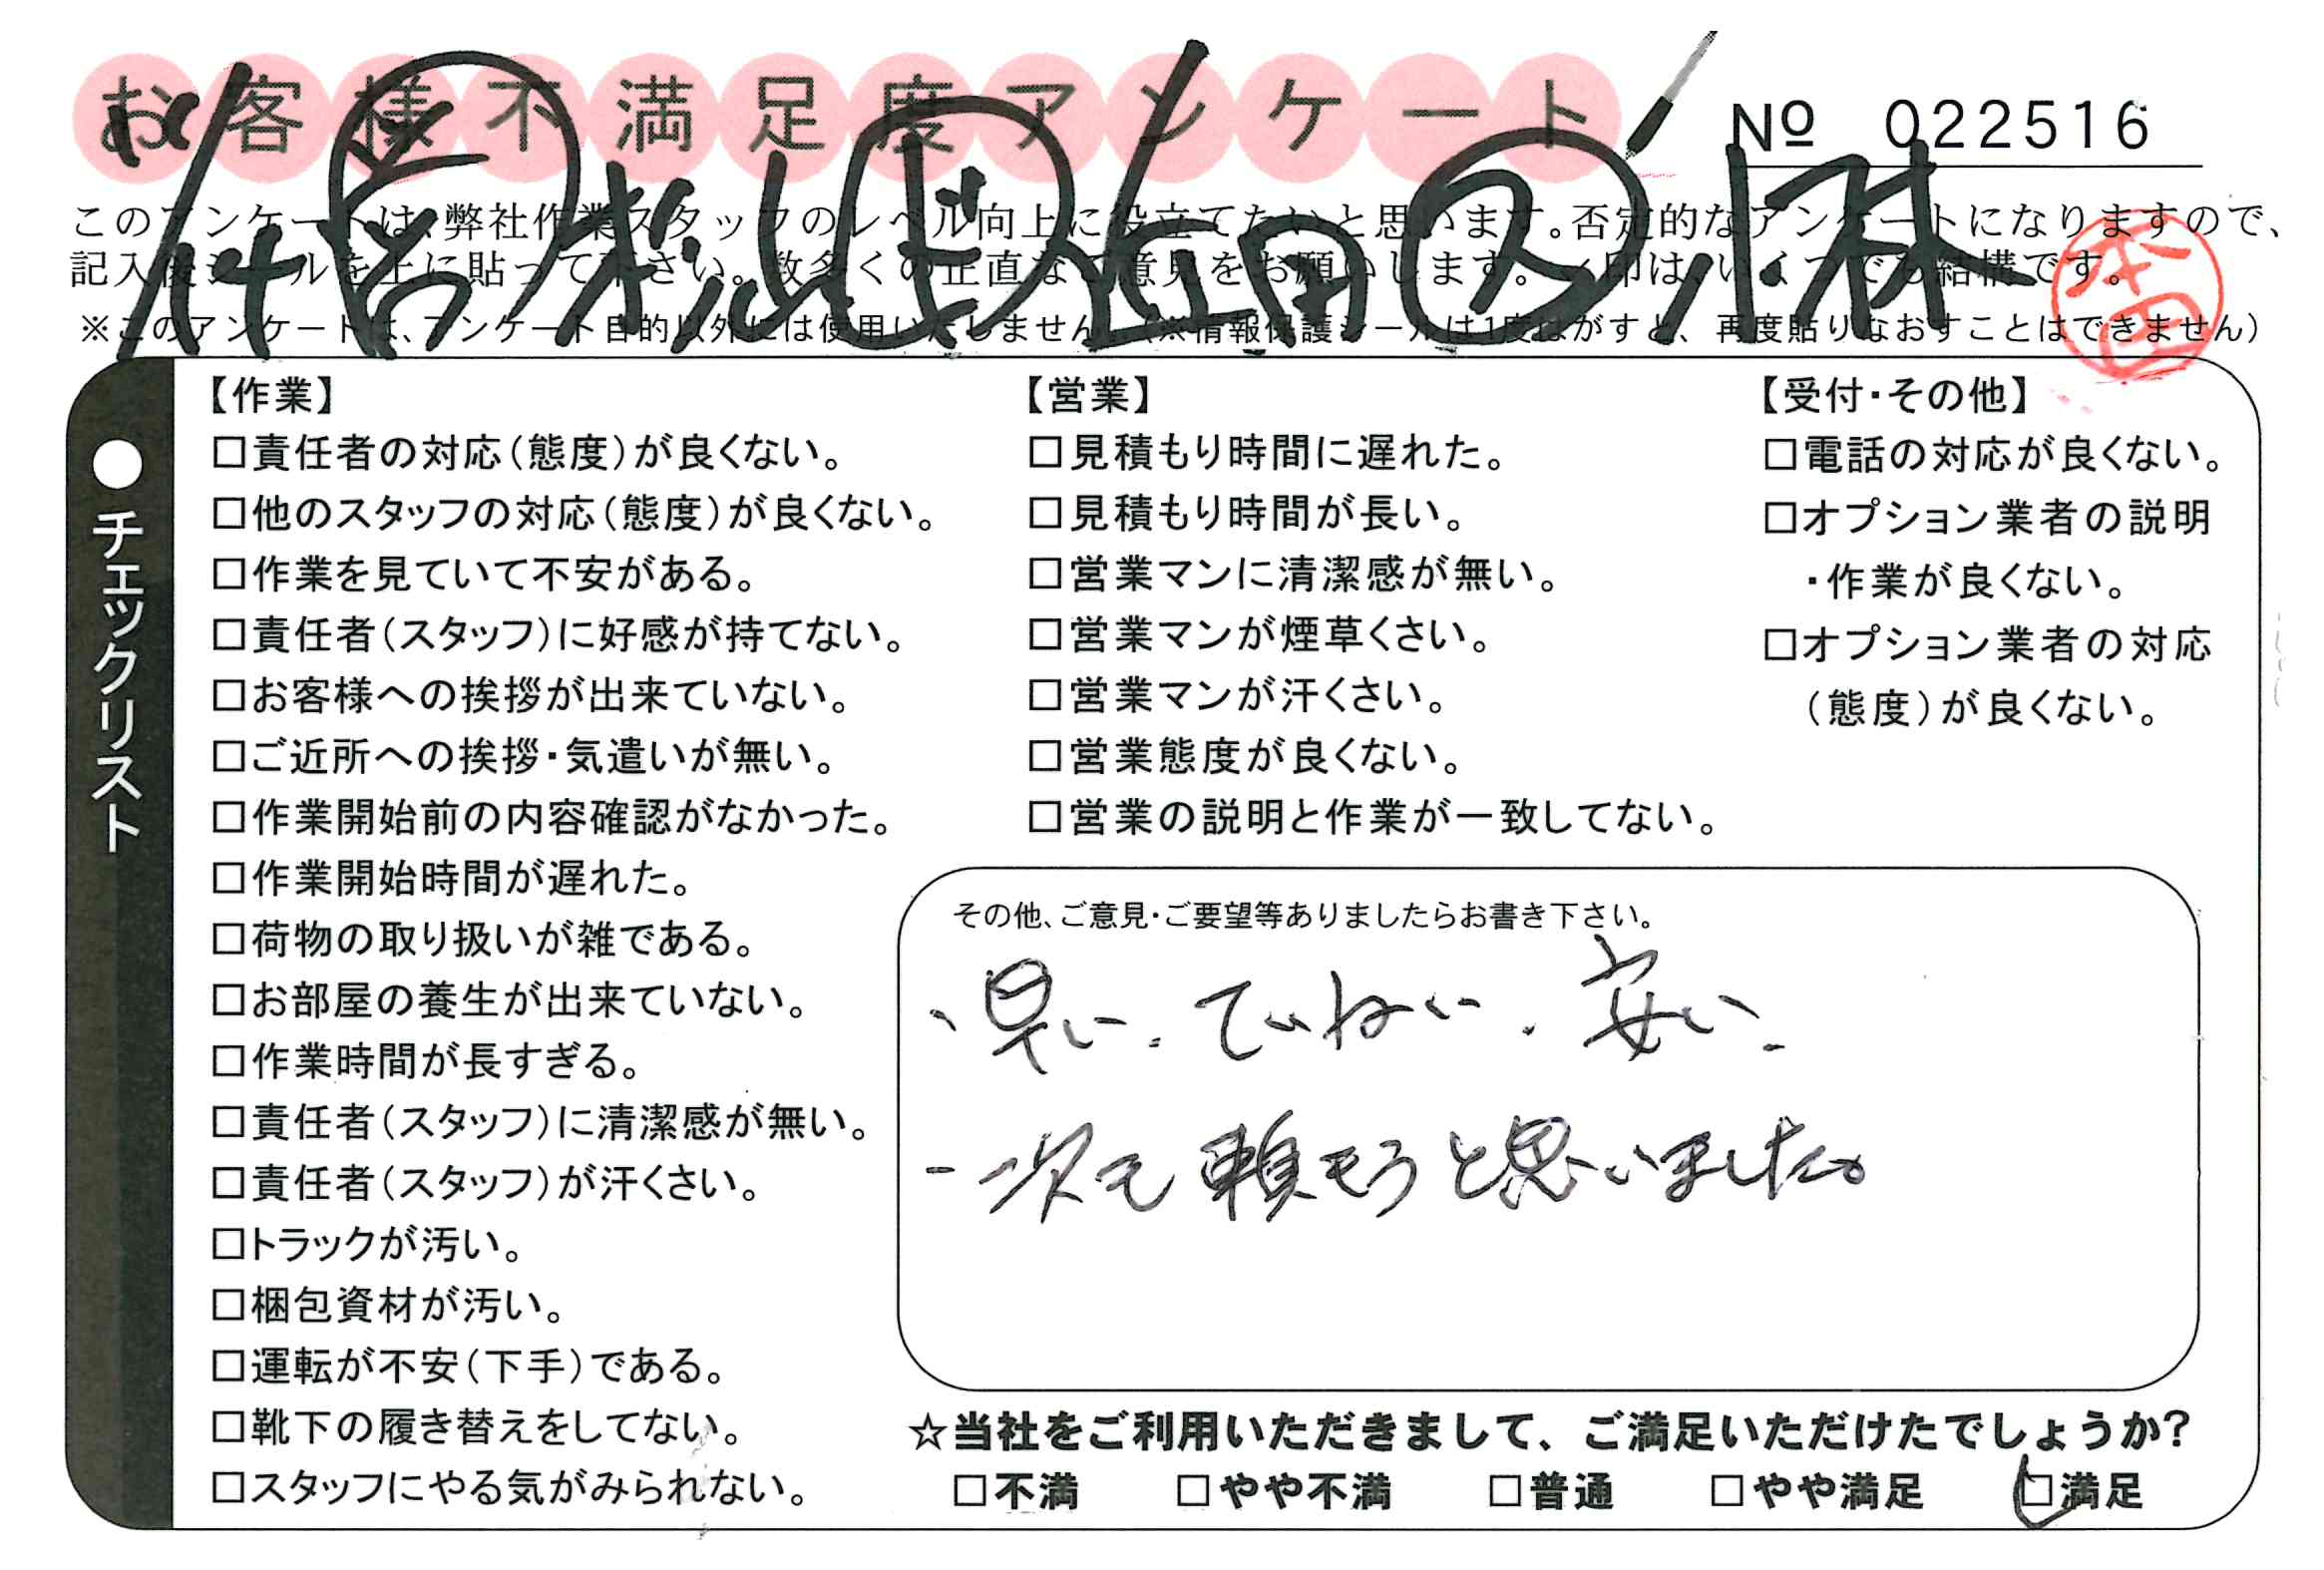 お客様不満足度アンケート
№ 022516
このアンケートは、弊社作業スタッフのレベル向上に役立てたいと思います。否定的なアンケートになりますので、
記入後シールを上に貼って下さい。数多くの正直なご意見をお願いします。✓印は、いくつでも結構です。
※このアンケートは、アンケート目的以外には使用いたしません。(※情報保護シールは1度はがすと、再度貼りなおすことはできません)
本田
●チェックリスト
【作業】
□責任者の対応(態度)が良くない。
□他のスタッフの対応(態度)が良くない。
□作業を見ていて不安がある。
□責任者(スタッフ)に好感が持てない。
□お客様への挨拶が出来ていない。
□ご近所への挨拶・気遣いが無い。
□作業開始前の内容確認がなかった。
□作業開始時間が遅れた。
□荷物の取り扱いが雑である。
□お部屋の養生が出来ていない。
□作業時間が長すぎる。
□責任者(スタッフ)に清潔感が無い。
□責任者(スタッフ)が汗くさい。
□トラックが汚い。
□梱包資材が汚い。
□運転が不安(下手)である。
□靴下の履き替えをしてない。
□スタッフにやる気がみられない。
【営業】
□見積もり時間に遅れた。
□見積もり時間が長い。
□営業マンに清潔感が無い。
□営業マンが煙草くさい。
□営業マンが汗くさい。
□営業態度が良くない。
□営業の説明と作業が一致してない。
【受付・その他】
□電話の対応が良くない。
□オプション業者の説明
・作業が良くない。
□オプション業者の対応
(態度)が良くない。
その他、ご意見・ご要望等ありましたらお書き下さい。
、早い、ていねい、安い、
- 次も頼もうと思いました。
☆当社をご利用いただきまして、ご満足いただけたでしょうか?
□不満 □やや不満 □普通 □やや満足 □満足